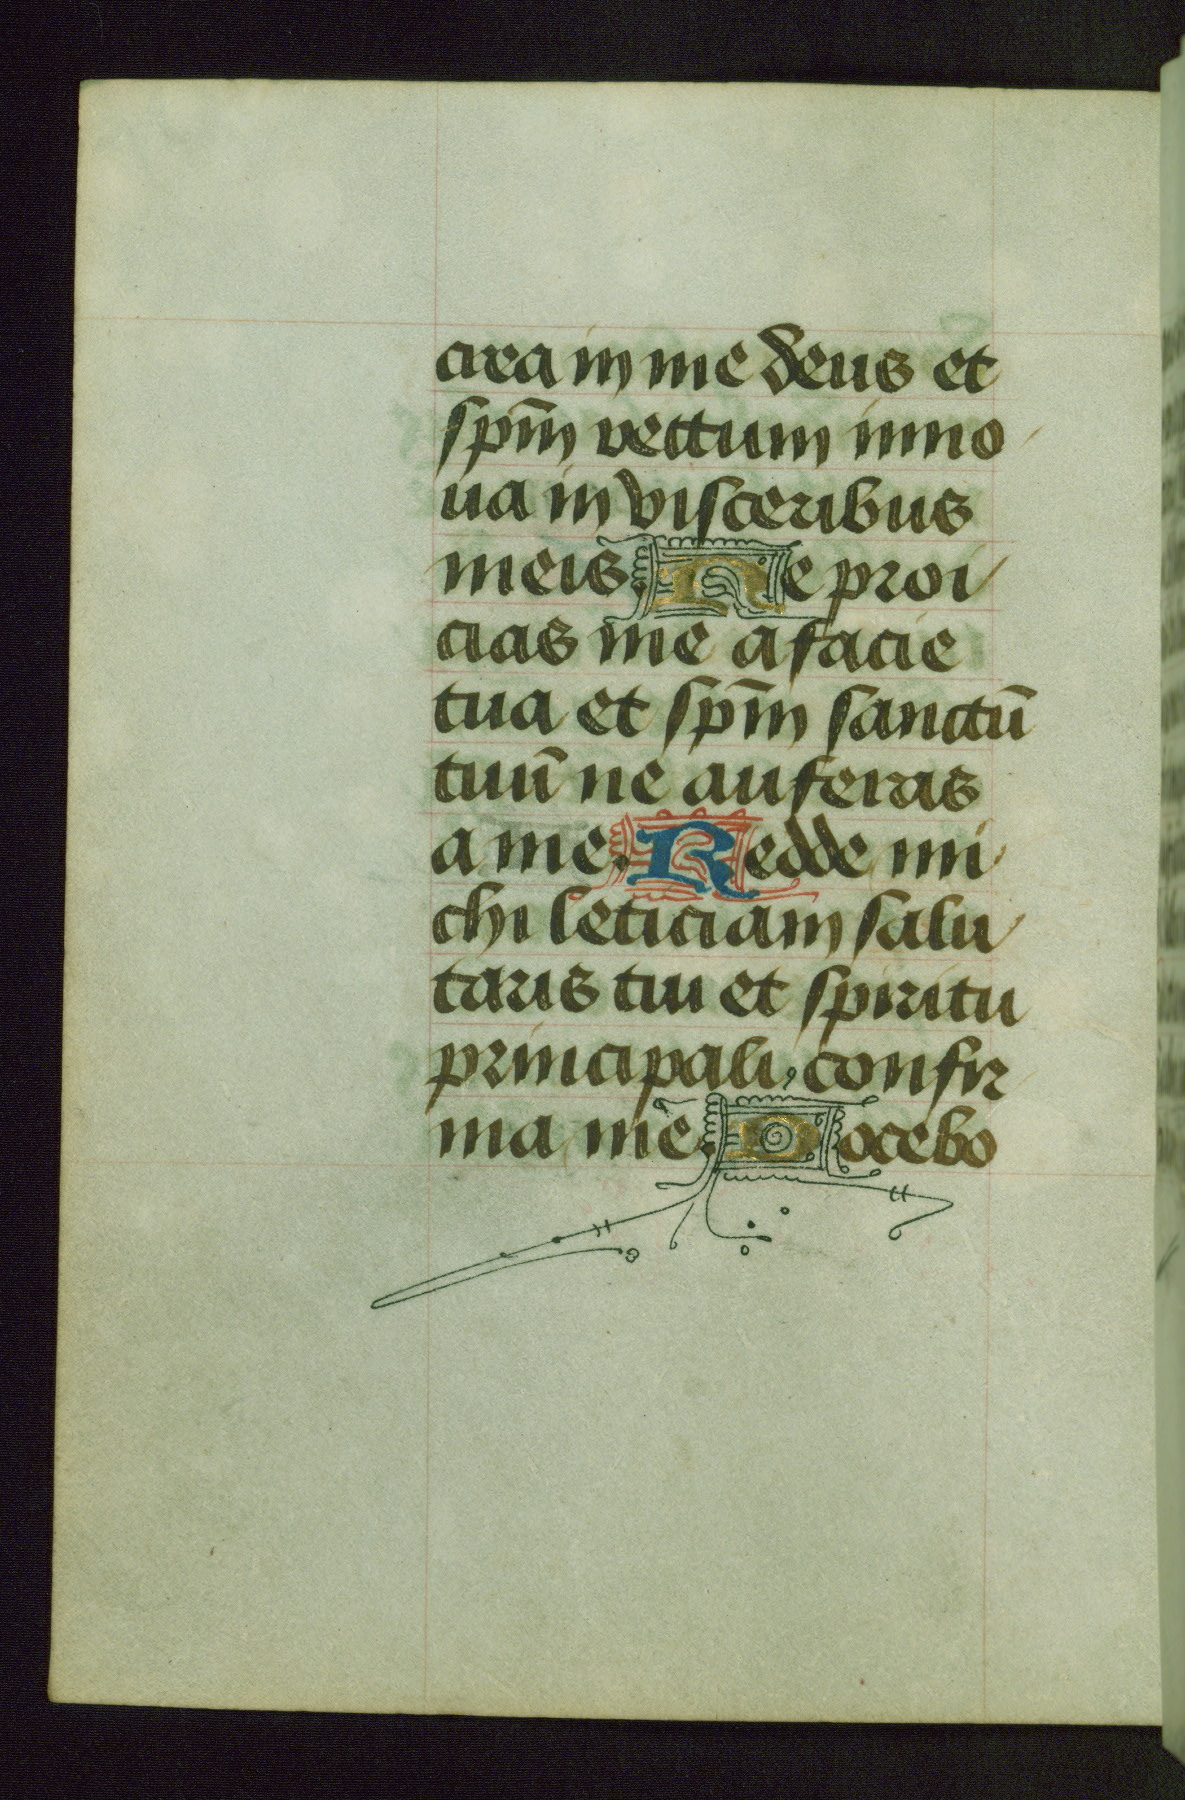 crea in me deus et
sp̄m rectum inno
ua in visceribus
meis. Ne proi
cias me a facie
tua et sp̄m sanctū
tuū ne auferas
a me. Redde mi
chi leticiam salu
taris tui et spiritu
principali confir
ma me. Docebo